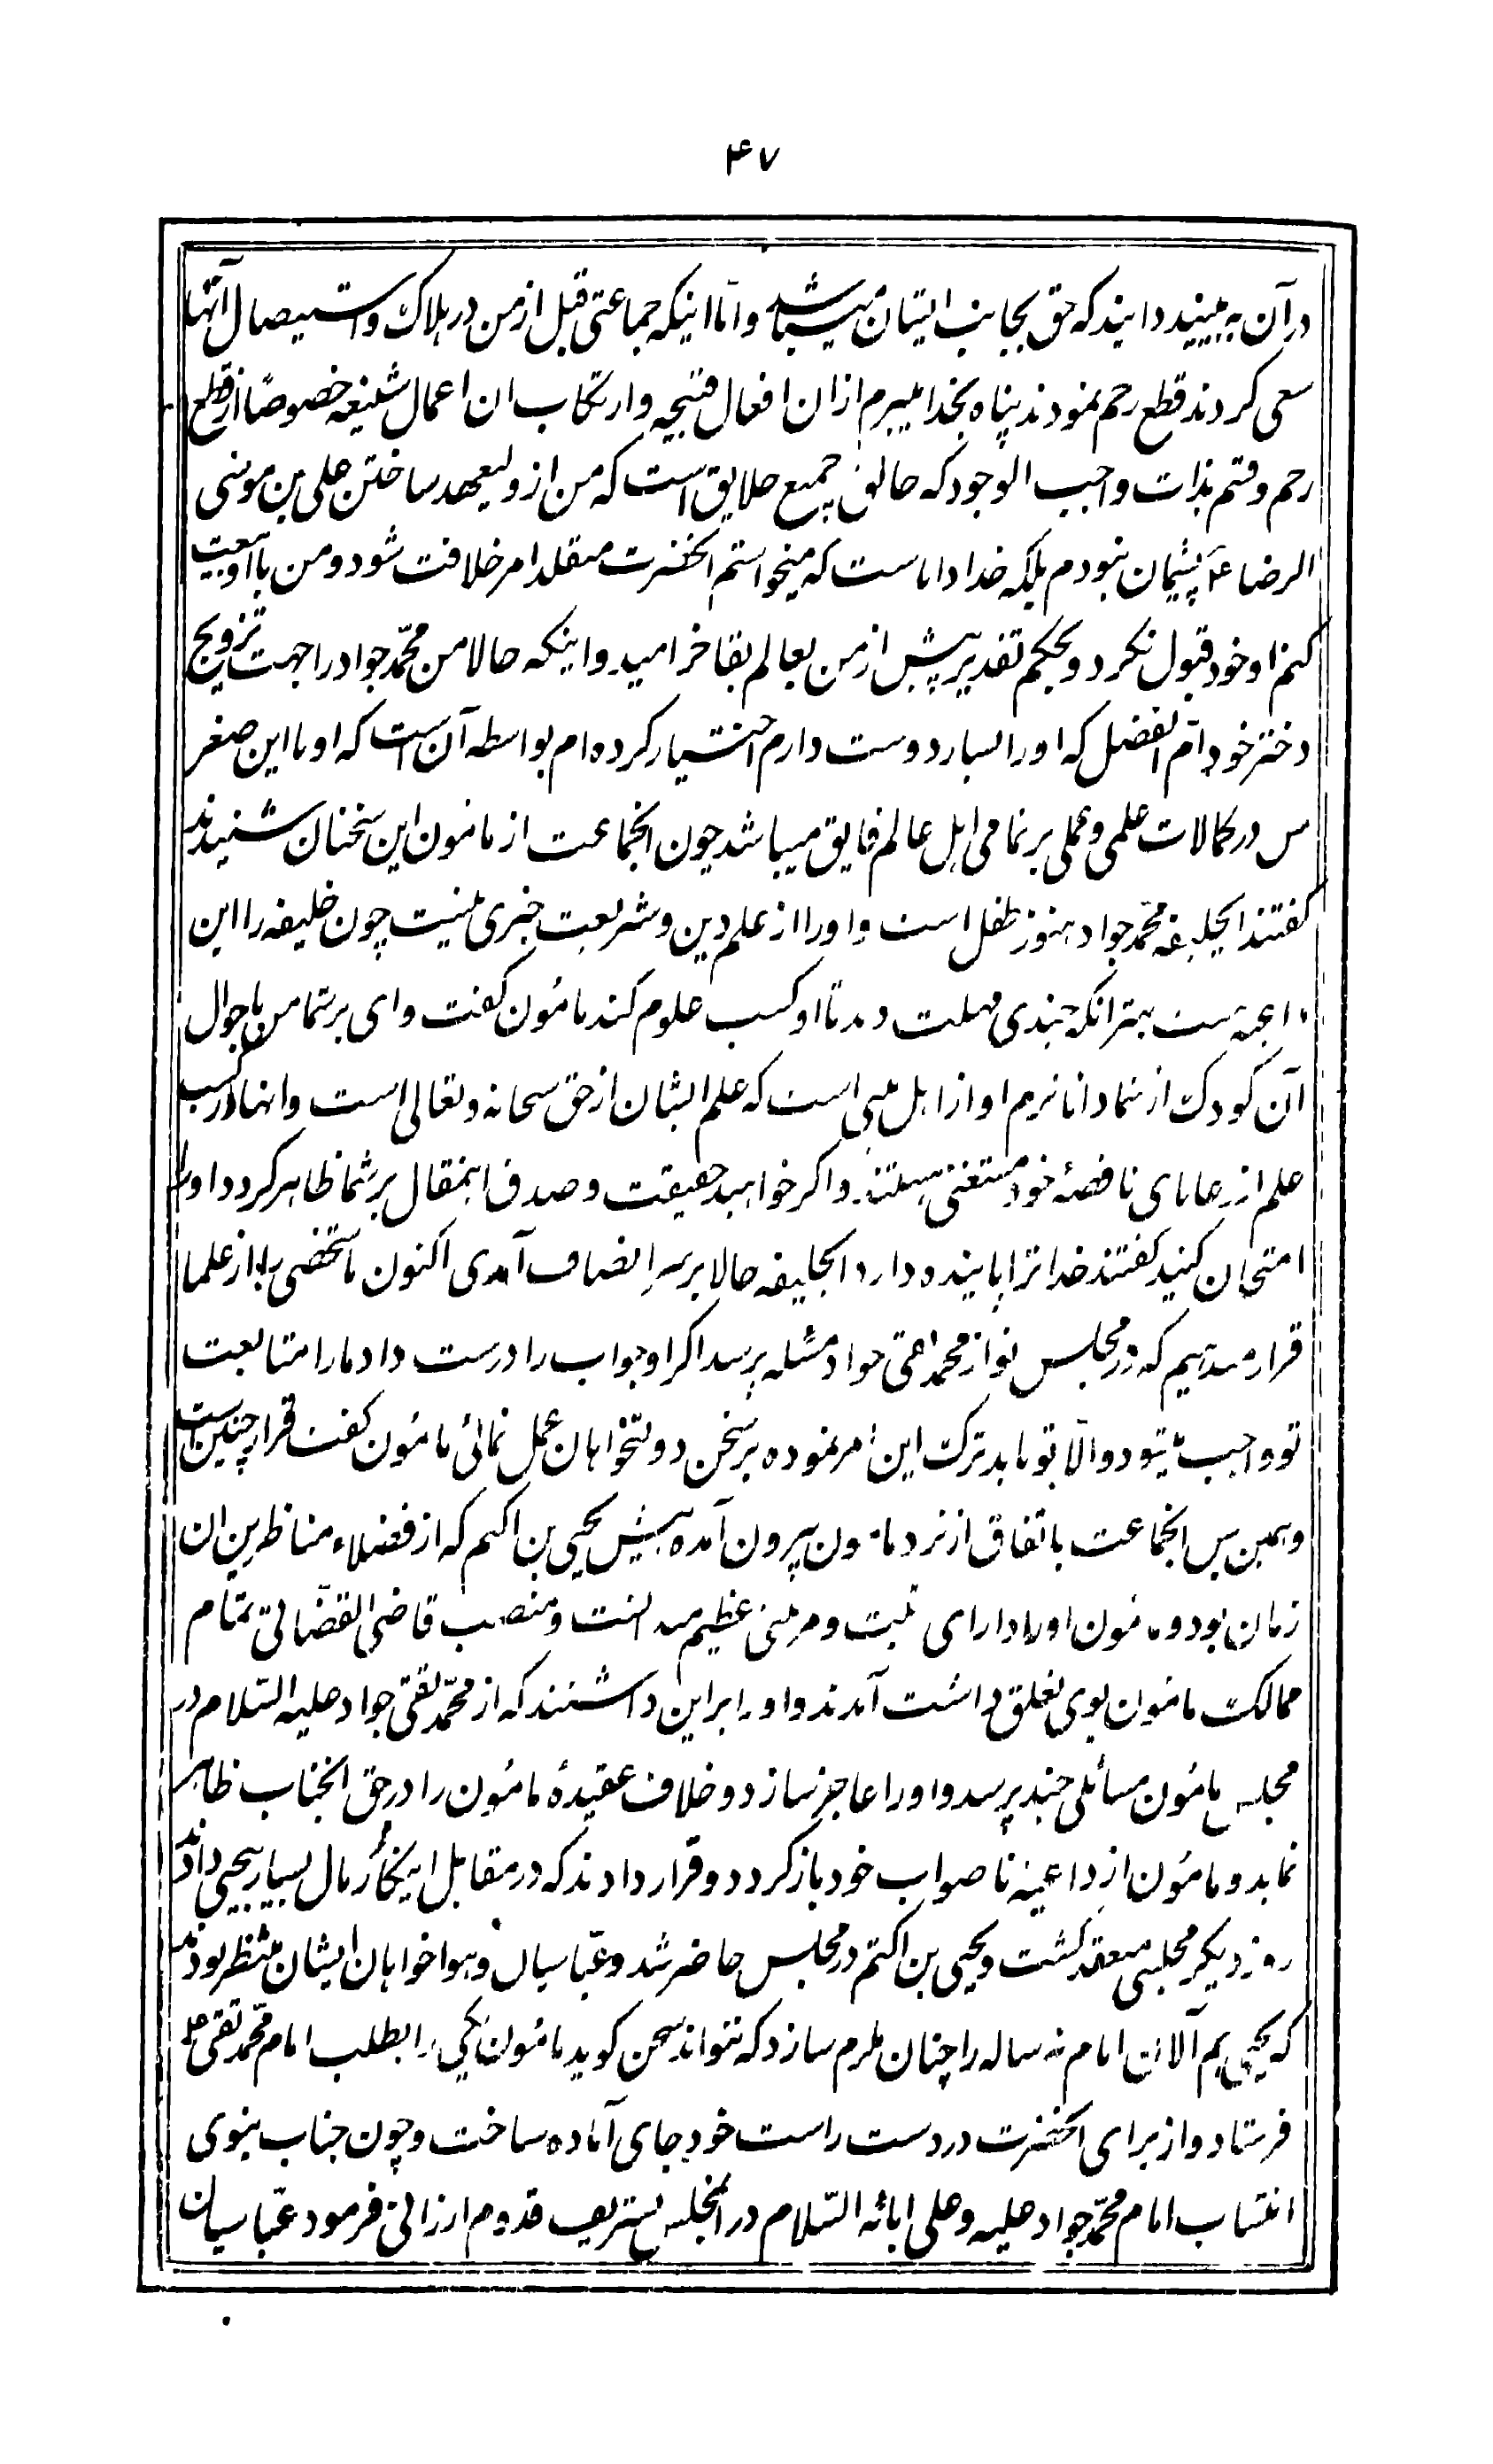 ۴۷
در آن به بینید دانید که حق بجانب ایشان میباشد و اما اینکه جماعتی قبل از من در هلاک و استیصال آنها
سعی کردند قطع رحم نمودند پناه بخدا میبرم از ان افعال قبیحه و ارتکاب ان اعمال شنیعه خصوصاً از قطع
رحم وقسم بذات واجب الوجود که خالق جمیع خلایق است که من از ولیعهد ساختن علی بن موسی
الرضا ع پشیمان نبودم بلکه خدا داناست که میخواستم آنحضرت متقلد امر خلافت شود و من با او بیعت
کنم او خود قبول نکرد و بحکم تقدیر پیش از من بعالم بقا خرامید و اینکه حالا من محمّد جواد را جهت تزویج
دختر خود ام الفضل که او را بسیار دوست دارم اختیار کرده ام بواسطه آن است که او با این صغر
سن در کمالات علمی و عملی بر تمامی اهل عالم فایق میباشد چون انجماعت از مامون این سخنان شنیدند
کفتند ایخلیفه محمّد جواد هنوز طفل است و او را از علم دین و شریعت خبری نیست چون خلیفه را این
داعیه است بهتر انکه چندی مهلت دهد تا او کسب علوم کند مامُون کفت وای بر شما من باحوال
آن کودک از شما داناترم او از اهل بیتی است که علم ایشان از حق سبحانه و تعالی است و انها در کسب
علم از رعایای ناقصهٔ خود مستغنی هستند و اکر خواهید حقیقت و صدق اینمقال بر شما ظاهر کردد او را
امتحان کنید کفتند خدا ترا پاینده دارد ایخلیفه حالا بر سرِ انصاف آمدی اکنون ما شخصی را از علما
قرار میدهیم که در مجلس تو از محمد تقی جواد مسئله بپرسد اکر او جواب را درست داد ما را متابعت
تو واجب میشود والّا تو باید ترک این امر نموده بر سخن دولتخواهان عمل نمائی مامُون کفت قرار چنین است
وهمین پس انجماعت باتفاق از نزد مامون بیرون آمده پیش یحیی بن اکثم که از فضلاء مناظرین ان
زمان بود و مامُون او را دارای رتبت و مرتبتی عظیم میدانست و منصب قاضی القضّاتی تمام
ممالک مامُون بوی تعلق داشت آمدند و او را بر این داشتند که از محمّد تقی جواد علیه السّلام در
مجلس مامُون مسائلی چند پرسد و او را عاجز سازد و خلاف عقیدهٔ مامُون را در حق انجناب ظاهر
نماید و مامُون از داعیه ناصواب خود باز کردد و قرار دادند که در مقابل اینکار مال بسیار بیحیی دادند
روز دیکر مجلسی منعقد کشت و یحیی بن اکثم در مجلس حاضر شد و عبّاسیان و هواخواهان ایشان منتظر بودند
که یحیی هم آلان امام نه ساله را چنان ملزم سازد که نتواند سخن کوید مامُون یکی را بطلب امام محمّد تقی ع
فرستاد و از برای آنحضرت در دست راست خود جای آماده ساخت و چون جناب نبوی
انتساب امام محمّد جواد علیه و علی ابائه السّلام در انمجلس تشریف قدوم ارزانی فرمود عبّاسیان